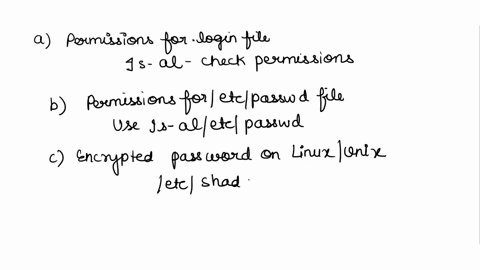 a) Permissions for .login file
ls - al - check permissions
b) Permissions for /etc/passwd file
Use ls - al /etc/ passwd
c) Encrypted password on Linux/Unix
/etc/ shad